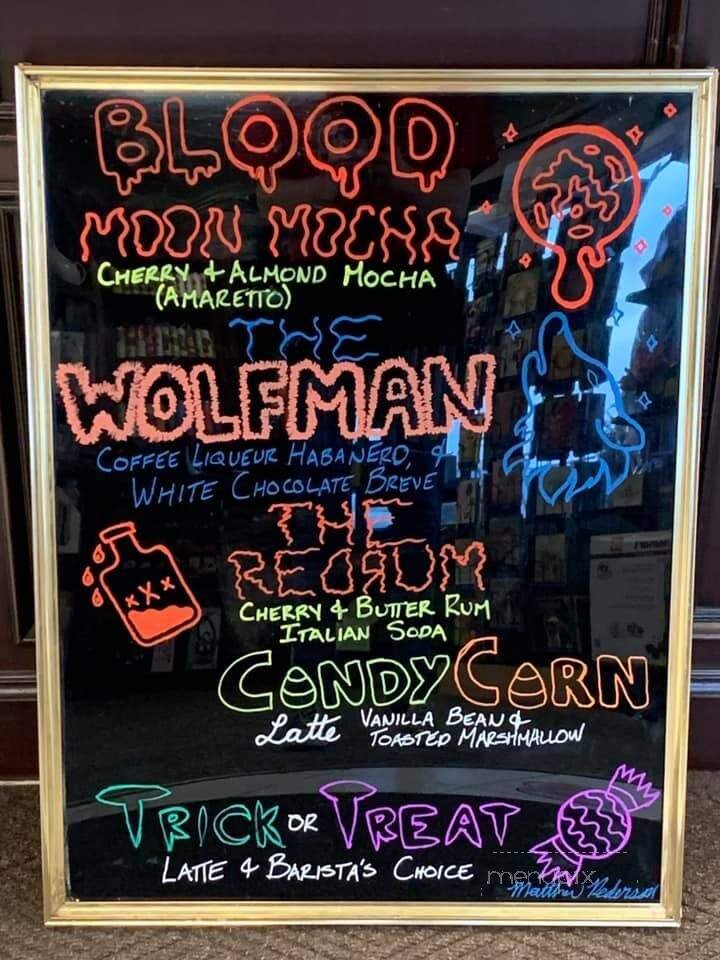 BLOOD
MOON MOCHA
CHERRY & ALMOND MOCHA
(AMARETTO)
THE
WOLFMAN
COFFEE LIQUEUR HABANERO, &
WHITE CHOCOLATE BREVE
THE
REDRUM
XXX
CHERRY & BUTTER RUM
ITALIAN SODA
CANDY CORN
Latte VANILLA BEAN &
TOASTED MARSHMALLOW
TRICK OR TREAT
LATTE & BARISTA'S CHOICE
menupix
Matthew Pederson